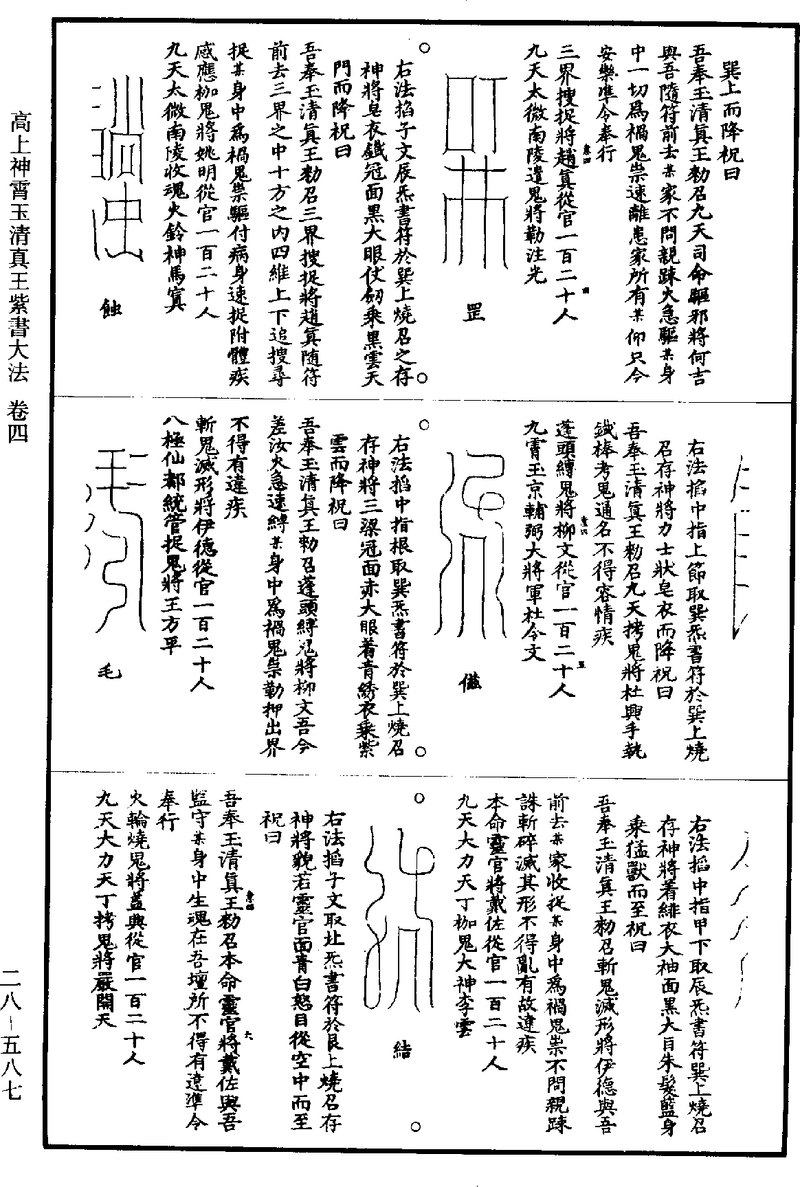 巽上而降祝曰
吾奉玉清真王勑召九天司命驅邪將何吉
與吾隨符前去某家不問親踈火急驅某身
中一切為禍鬼祟速離患家所有某仰只今
安樂準令奉行
三界搜捉將趙真從官一百二十人
九天太微南陵遣鬼將勒注光
罡
右法掐子文辰炁書符於巽上燒召之存
神將皂衣鐵冠面黑大眼仗劒乘黑雲天
門而降祝曰
吾奉玉清真王勑召三界搜捉將趙真隨符
前去三界之中十方之內四維上下追搜尋
捉某身中為禍鬼祟驅付病身速捉附體疾
感應枷鬼將姚明從官一百二十人
九天太微南陵收魂火鈴神馬寘
蝕
右法掐中指上節取巽炁書符於巽上燒
召存神將力士狀皂衣而降祝曰
吾奉玉清真王勑召九天拷鬼將杜興手執
鐵棒考鬼通名不得容情疾
蓬頭縛鬼將柳文從官一百二十人
九霄玉京輔弼大將軍杜令文
右法掐中指根取巽炁書符於巽上燒召
存神將三梁冠面赤大眼着青綉衣乘紫
雲而降祝曰
吾奉玉清真王勑召蓬頭縛鬼將柳文吾今
差汝火急速縛某身中為禍鬼祟勒押出界
不得有違疾
斬鬼滅形將伊德從官一百二十人
八極仙都統管捉鬼將王方平
毛
右法掐中指甲下取辰炁書符巽上燒召
存神將着緋衣大袖面黑大目朱髮藍身
乘猛獸而至祝曰
吾奉玉清真王勑召斬鬼滅形將伊德與吾
前去某家收捉某身中為禍鬼祟不問親踈
誅斬碎滅其形不得亂有故違疾
本命靈官將戴佐從官一百二十人
九天大力天丁枷鬼大神李雲
結
右法掐子文取炁書符於艮上燒召存
神將貌若靈官面青白怒目從空中而至
祝曰
吾奉玉清真王勑召本命靈官將戴佐與吾
監守某身中生魂在吾壇所不得有違準令
奉行
火輪燒鬼將蓋興從官一百二十人
九天大力天丁拷鬼將嚴開天
高上神霄玉清真王紫書大法 卷四
二八—五八七